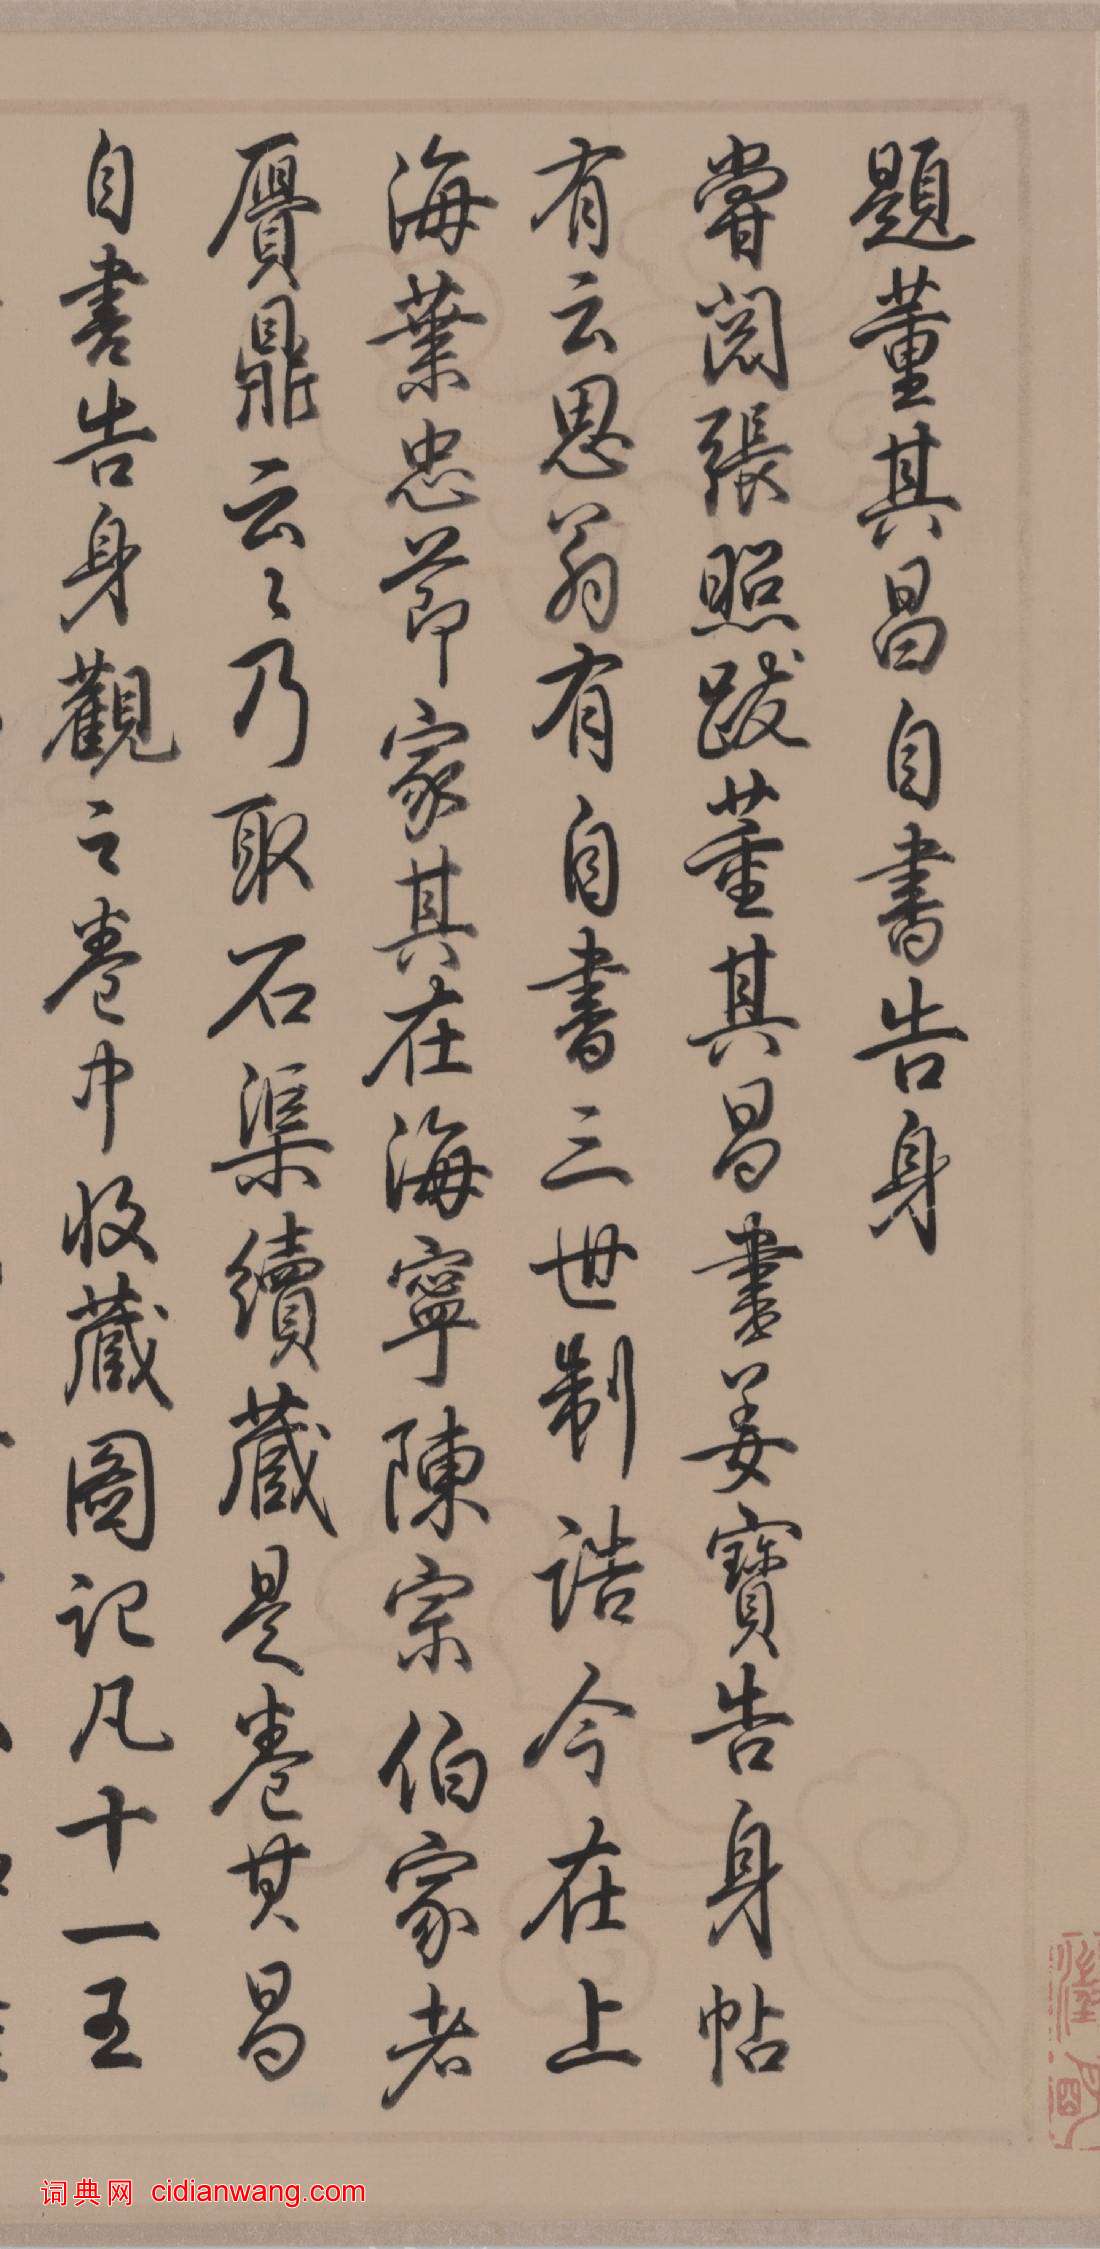 題董其昌自書告身
嘗閱張照跋董其昌書姜寶告身帖
有云思翁有自書三世制誥今在上
海葉忠節家其在海寧陳宗伯家者
贗鼎云〻乃取石渠續藏是卷其昌
自書告身觀之卷中收藏圖記凡十一王
词典网 cidianwang.com